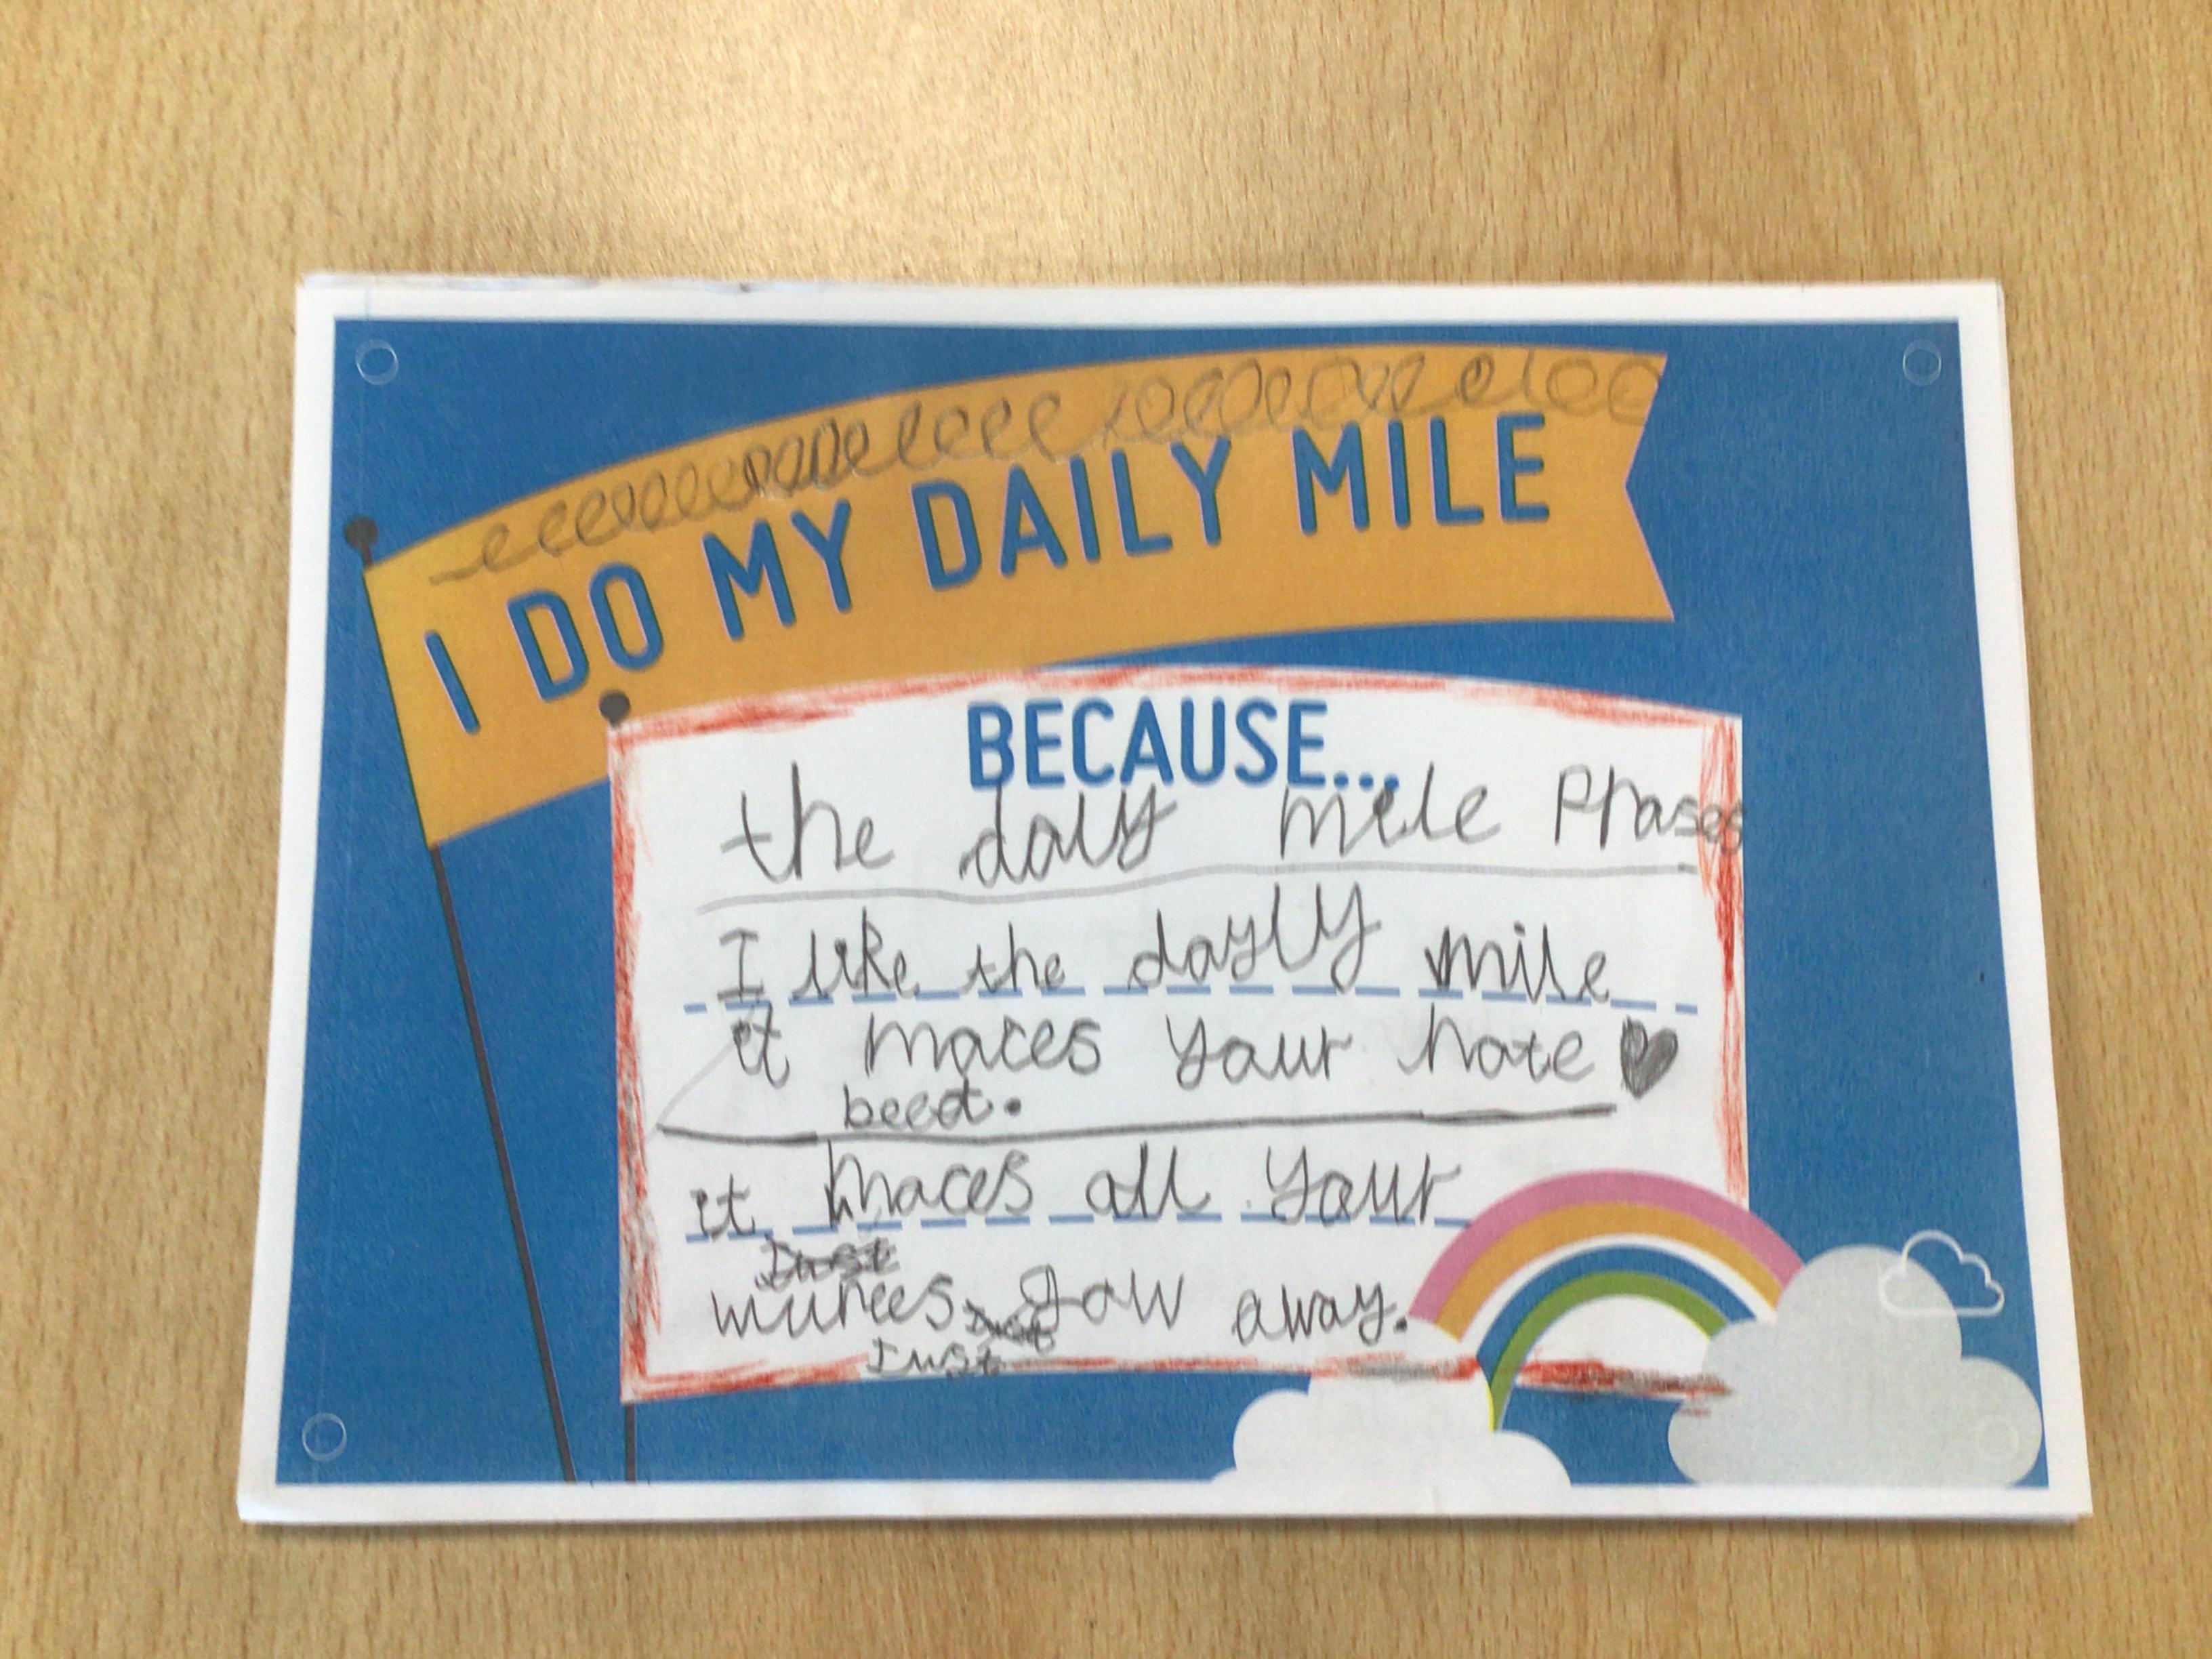 I DO MY DAILY MILE
BECAUSE...
the daly mile Phases
I like the dayly mile
it maces your hate
beet.
it maces all your
wurees gow away.
Just